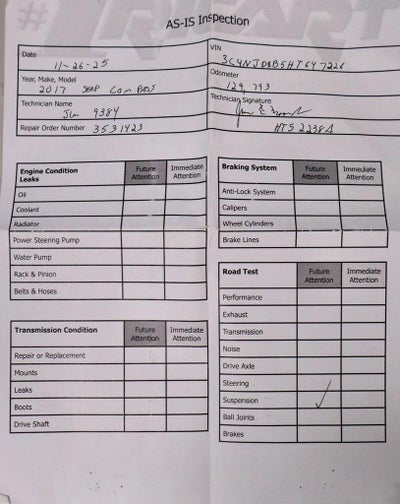 #RICART
AS-IS Inspection
Date 11-26-25
VIN 3C4NJDBB5HT647226
Year, Make, Model 2017 JEEP Compass
Odometer 129,793
Technician Name Jim 9384
Technician Signature
Repair Order Number 3531423
HTS2238A
Engine Condition Future Attention Immediate Attention
Leaks
Oil
Coolant
Radiator
Power Steering Pump
Water Pump
Rack & Pinion
Belts & Hoses
Transmission Condition Future Attention Immediate Attention
Repair or Replacement
Mounts
Leaks
Boots
Drive Shaft
Braking System Future Attention Immediate Attention
Anti-Lock System
Calipers
Wheel Cylinders
Brake Lines
Road Test Future Attention Immediate Attention
Performance
Exhaust
Transmission
Noise
Drive Axle
Steering
Suspension ✓
Ball Joints
Brakes